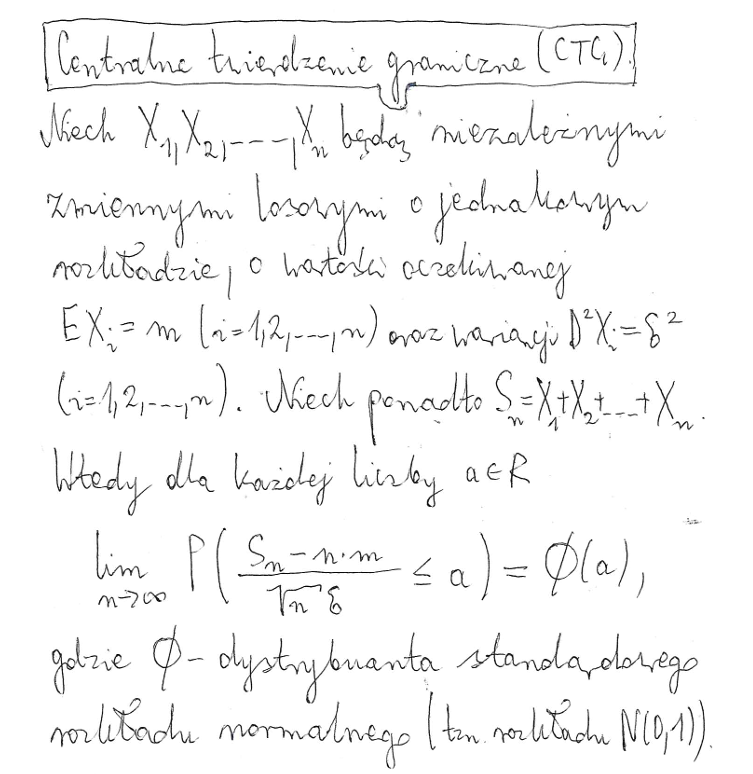 Centralne twierdzenie graniczne (CTG).
Niech X₁, X₂, ---, Xₙ będą niezależnymi
zmiennymi losowymi o jednakowym
rozkładzie, o wartości oczekiwanej
EXᵢ = m (i=1,2,---,n) oraz wariancji D²Xᵢ = δ²
(i=1,2,---,n). Niech ponadto Sₙ = X₁+X₂+---+Xₙ.
Wtedy dla każdej liczby a∈R
lim n→∞ P( (Sₙ - n·m) / (√n δ) ≤ a ) = Φ(a),
gdzie Φ - dystrybuanta standardowego
rozkładu normalnego (tzn. rozkładu N(0,1)).